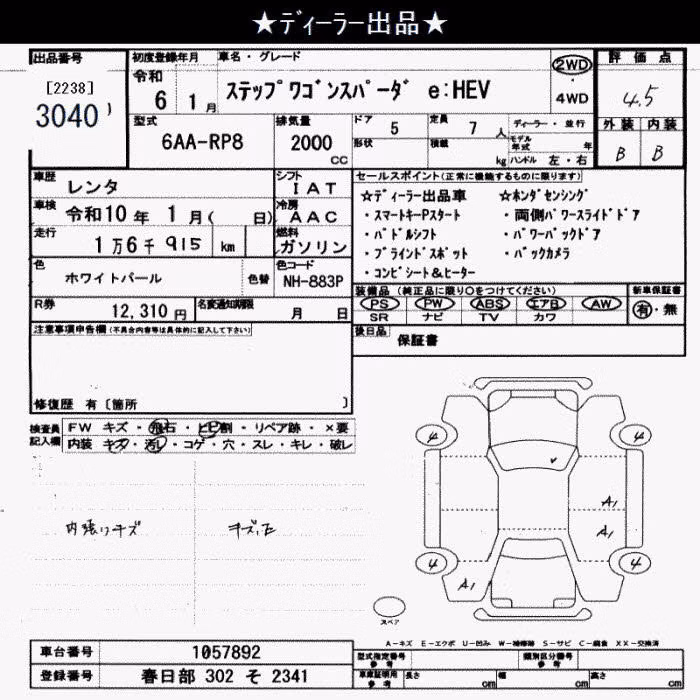 ★ディーラー出品★
出品番号
[2238]
3040
初度登録年月
令和
6 1月
車名・グレード
ステップワゴンスパーダ e:HEV
2WD
・
4WD
評価点
4.5
型式
6AA-RP8
排気量
2000
CC
ドア
5
形状
定員
7 人
積載
kg
ディーラー・並行
モデル年式 年
ハンドル 左・右
外装 内装
B B
車歴
レンタ
シフト
IAT
車検
令和10年 1月( 日)
冷房
AAC
走行
1万6千915 km
燃料
ガソリン
色
ホワイトパール
色替
色コード
NH-883P
R券
12,310 円
名変通知期限
月 日
セールスポイント(正常に機能するものに限ります)
☆ディーラー出品車 ☆ホンダセンシング
・スマートキーPスタート ・両側パワースライドドア
・パドルシフト ・パワーバックドア
・ブラインドスポット ・バックカメラ
・コンビシート&ヒーター
装備品(純正品に限り○をつけてください)
PS PW ABS エアB AW
SR ナビ TV カワ
新車保証書
有・無
後日品
保証書
注意事項申告欄(不具合内容等は具体的に記入して下さい)
修復歴 有〔箇所 〕
検査員記入欄
FW キズ・飛石・ヒビ割・リペア跡・×要
内装 キズ・汚レ・コゲ・穴・スレ・キレ・破レ
内張りキズ
4 4
A1
A1
4 4
A1
スペア
A-キズ E-エクボ U-凹み W-補修跡 S-サビ C-腐食 XX-交換済
車台番号
1057892
登録番号
春日部 302 そ 2341
型式指定番号
参考
類別区分番号
参考
車庫証明用
参考
長さ cm
幅 cm
高さ cm